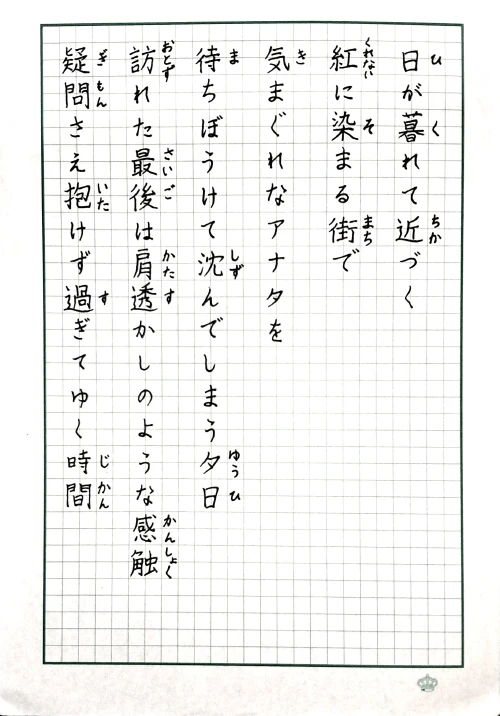 日が暮れて近づく
紅に染まる街で
気まぐれなアナタを
待ちぼうけて沈んでしまう夕日
訪れた最後は肩透かしのような感触
疑問さえ抱けず過ぎてゆく時間